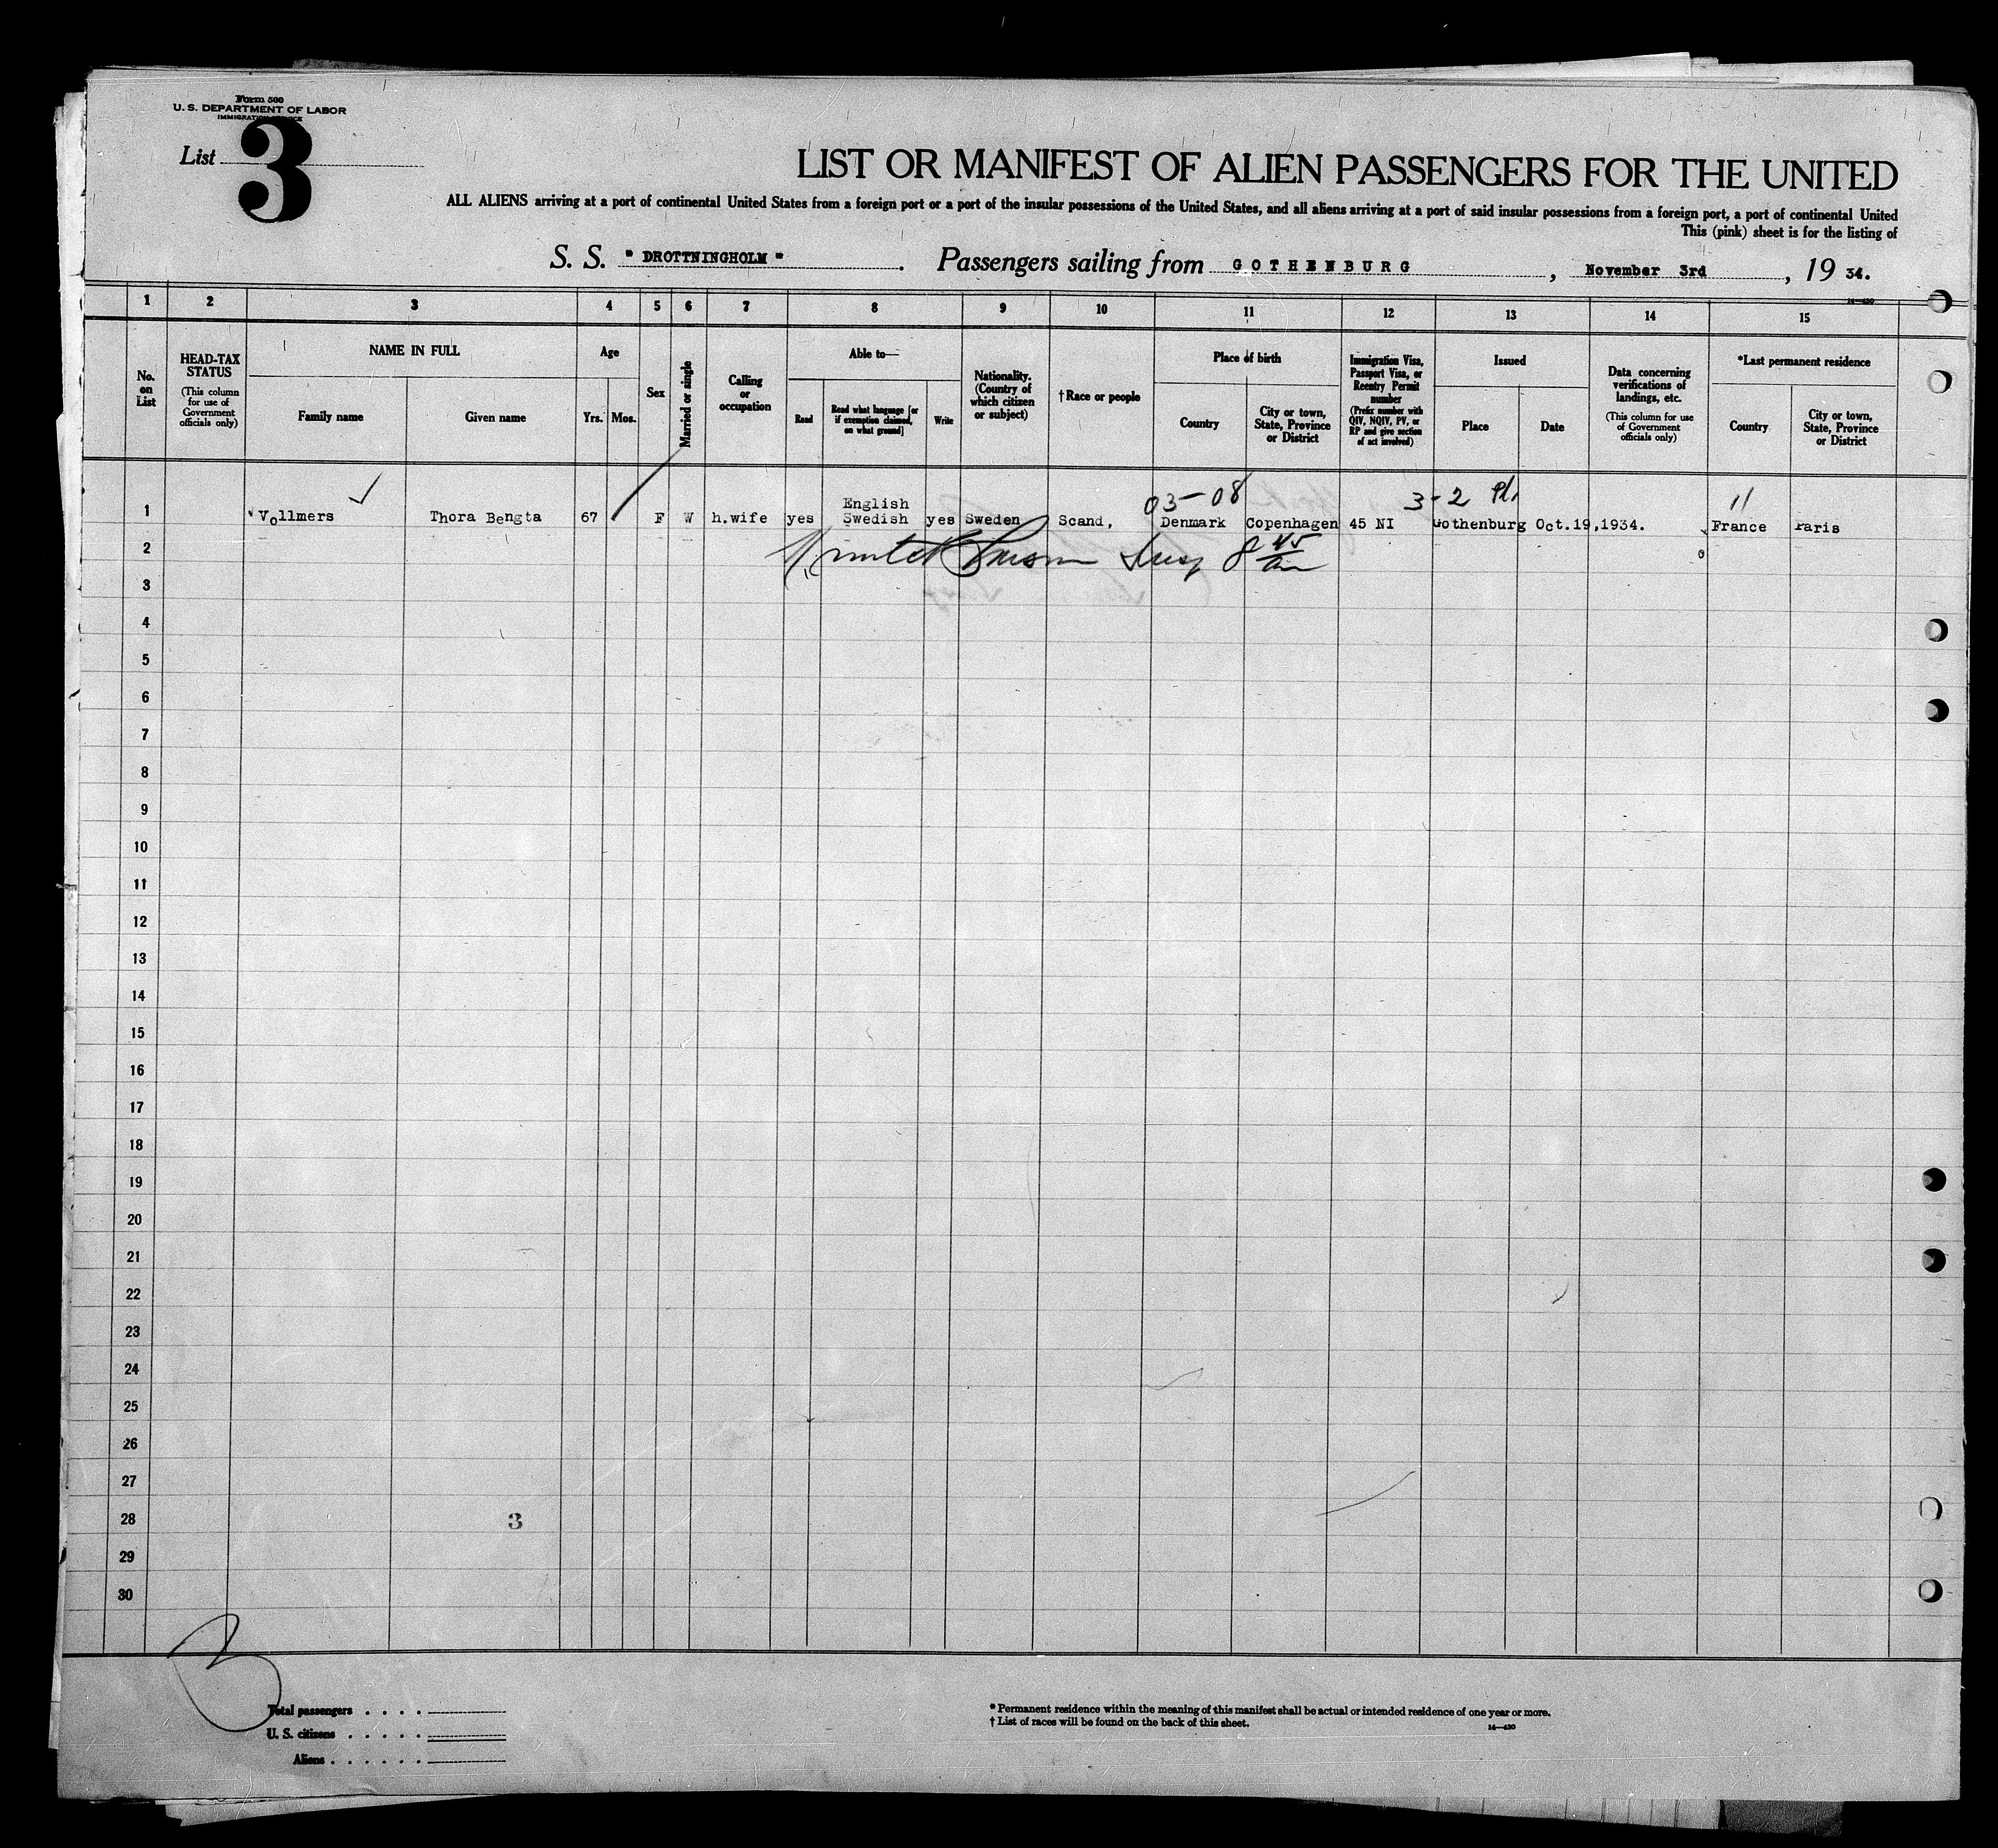 Form 500
U. S. DEPARTMENT OF LABOR
IMMIGRATION SERVICE
List 3
LIST OR MANIFEST OF ALIEN PASSENGERS FOR THE UNITED
ALL ALIENS arriving at a port of continental United States from a foreign port or a port of the insular possessions of the United States, and all aliens arriving at a port of said insular possessions from a foreign port, a port of continental United
This (pink) sheet is for the listing of
S. S. " DROTTNINGHOLM " . Passengers sailing from GOTHENBURG , November 3rd , 19 34.
14—430
1 2 3 4 5 6 7 8 9 10 11 12 13 14 15
No. on List
HEAD-TAX STATUS
(This column for use of Government officials only)
NAME IN FULL
Family name
Given name
Age
Yrs.
Mos.
Sex
Married or single
Calling or occupation
Able to—
Read
Read what language [or if exemption claimed, on what ground]
Write
Nationality. (Country of which citizen or subject)
† Race or people
Place of birth
Country
City or town, State, Province or District
Immigration Visa, Passport Visa, or Reentry Permit number
(Prefix number with QIV, NQIV, PV, or RP and give section of act involved)
Issued
Place
Date
Data concerning verifications of landings, etc.
(This column for use of Government officials only)
*Last permanent residence
Country
City or town, State, Province or District
03-08 3-2 11
English
1 Vollmers Thora Bengta 67 F W h.wife yes Swedish yes Sweden Scand, Denmark Copenhagen 45 NI Gothenburg Oct.19,1934. France Paris
8 45
2
3
4
5
6
7
8
9
10
11
12
13
14
15
16
17
18
19
20
21
22
23
24
25
26
27
28 3
29
30
3
Total passengers . . . .
U. S. citizens . . . . .
Aliens . . . . . .
* Permanent residence within the meaning of this manifest shall be actual or intended residence of one year or more.
† List of races will be found on the back of this sheet.
14—430